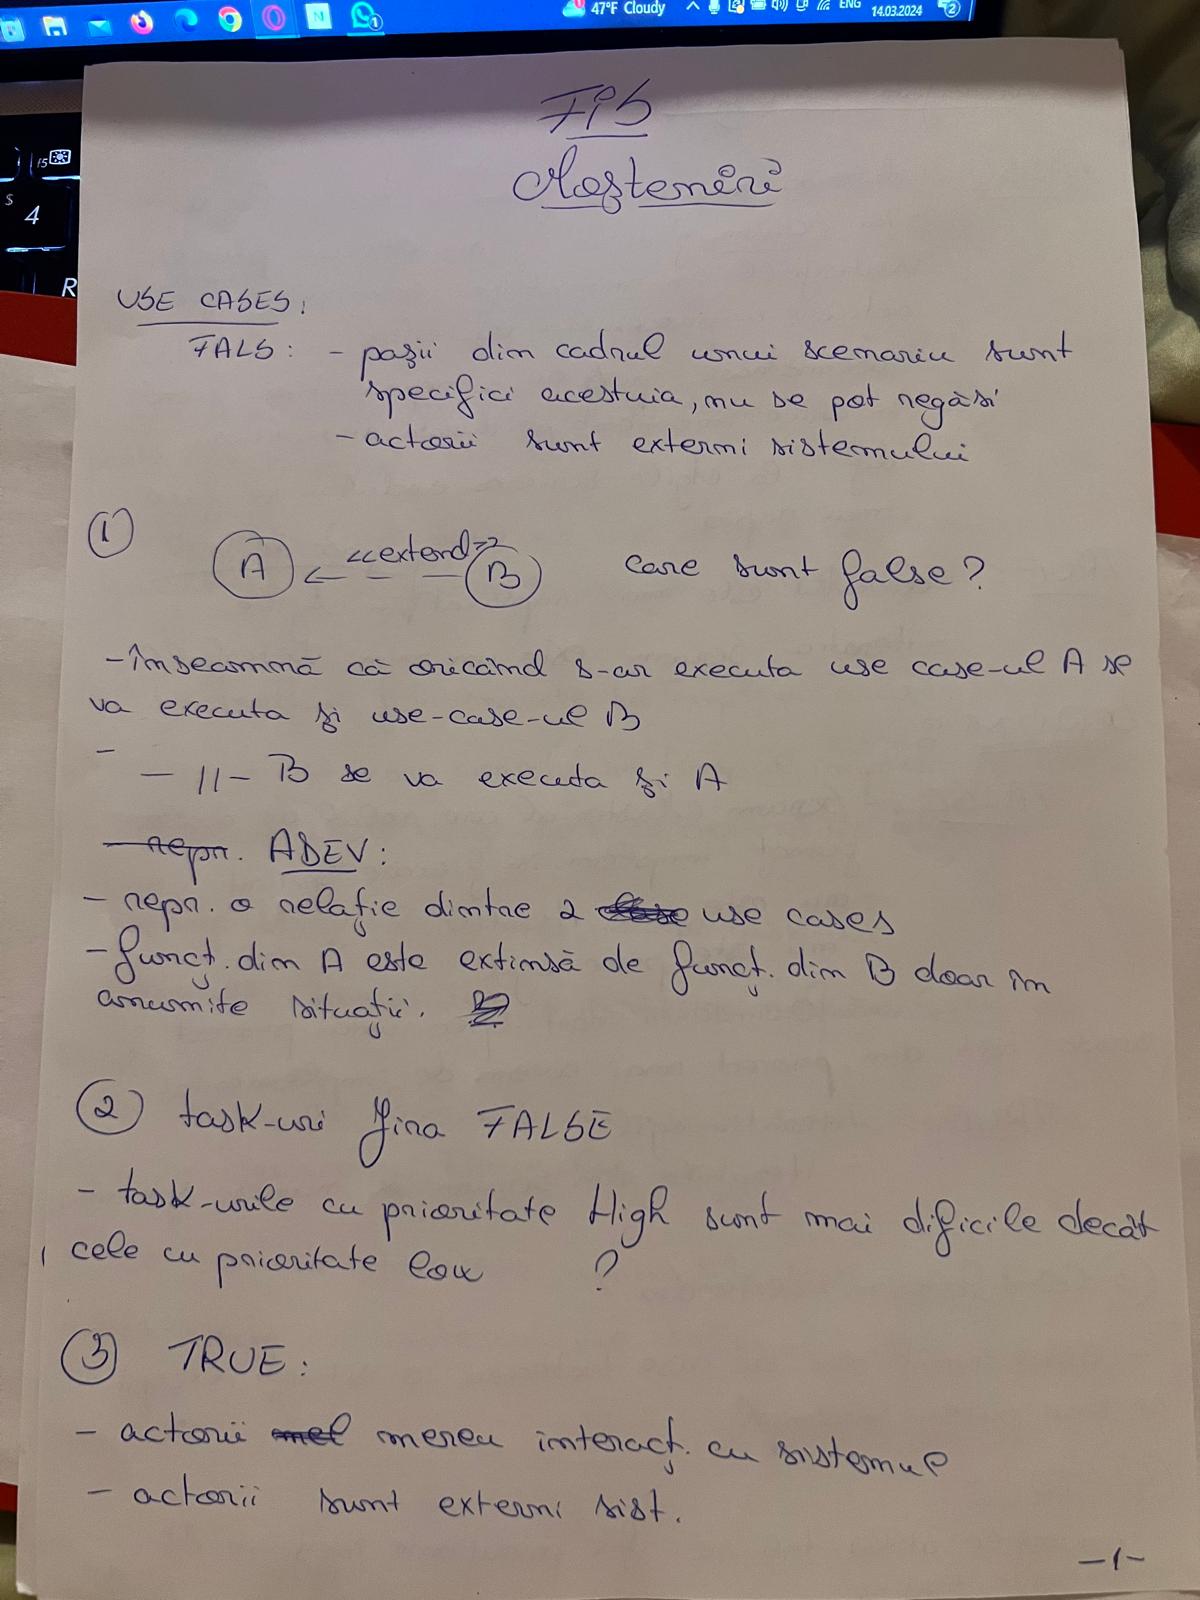 47°F Cloudy
ENG
14.03.2024
2
1
f5
$
4
R
FiS
Moșteniri
USE CASES:
FALS: - pașii din cadrul unui scenariu sunt
specifici acestuia, nu se pot regăsi
- actorii sunt externi sistemului
1
A <<extend>> B care sunt false?
- Înseamnă că oricând s-ar executa use case-ul A se
va executa și use-case-ul B
-
- 11 - B se va executa și A
- repr. ADEV:
- repr. o relație dintre 2 use cases
- funcț. din A este extinsă de funcț. din B doar în
anumite situații.
2 task-uri Jira FALSE
- task-urile cu prioritate High sunt mai dificile decât
cele cu prioritate low ?
3 TRUE:
- actorii mereu interacț. cu sistemul
- actorii sunt externi sist.
-1-